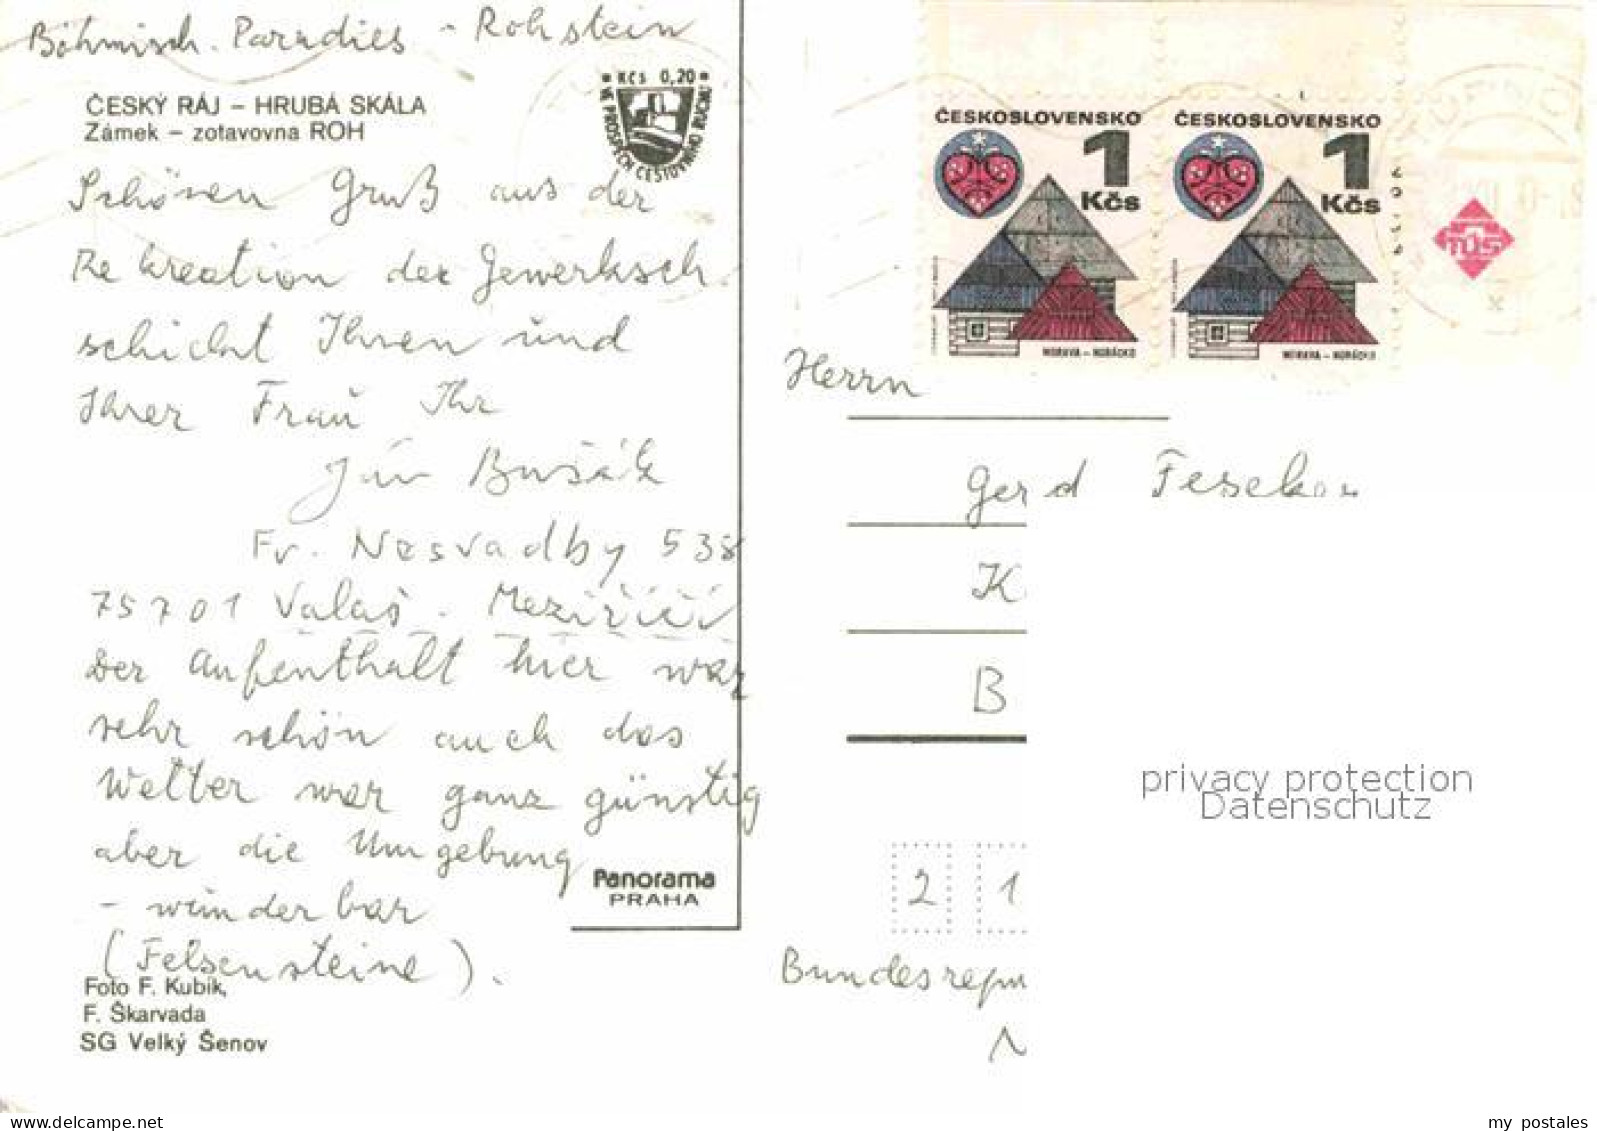 Böhmisch. Paradies - Rohstein
ČESKÝ RÁJ – HRUBÁ SKÁLA
Zámek – zotavovna ROH
KČS 0,20
VE PROSPĚCH CESTOVNÍHO RUCHU
Schönen Gruß aus der
Rekreation der Gewerksch.
schickt Ihnen und
Ihrer Frau Ihr
Ján Bušák
Fr. Nesvadby 538
75701 Valaš. Meziříčí
Der Aufenthalt hier war
sehr schön auch das
Wetter war ganz günstig
aber die Umgebung
- wunderbar
(Felsensteine).
Panorama
PRAHA
Foto F. Kubík,
F. Škarvada
SG Velký Šenov
ČESKOSLOVENSKO
1
Kčs
MORAVA – HORÁCKO
ČESKOSLOVENSKO
1
Kčs
MORAVA – HORÁCKO
Herrn
Gerd
K
B
2 1
Bundesrepu
privacy protection
Datenschutz
www.delcampe.net
my_postales